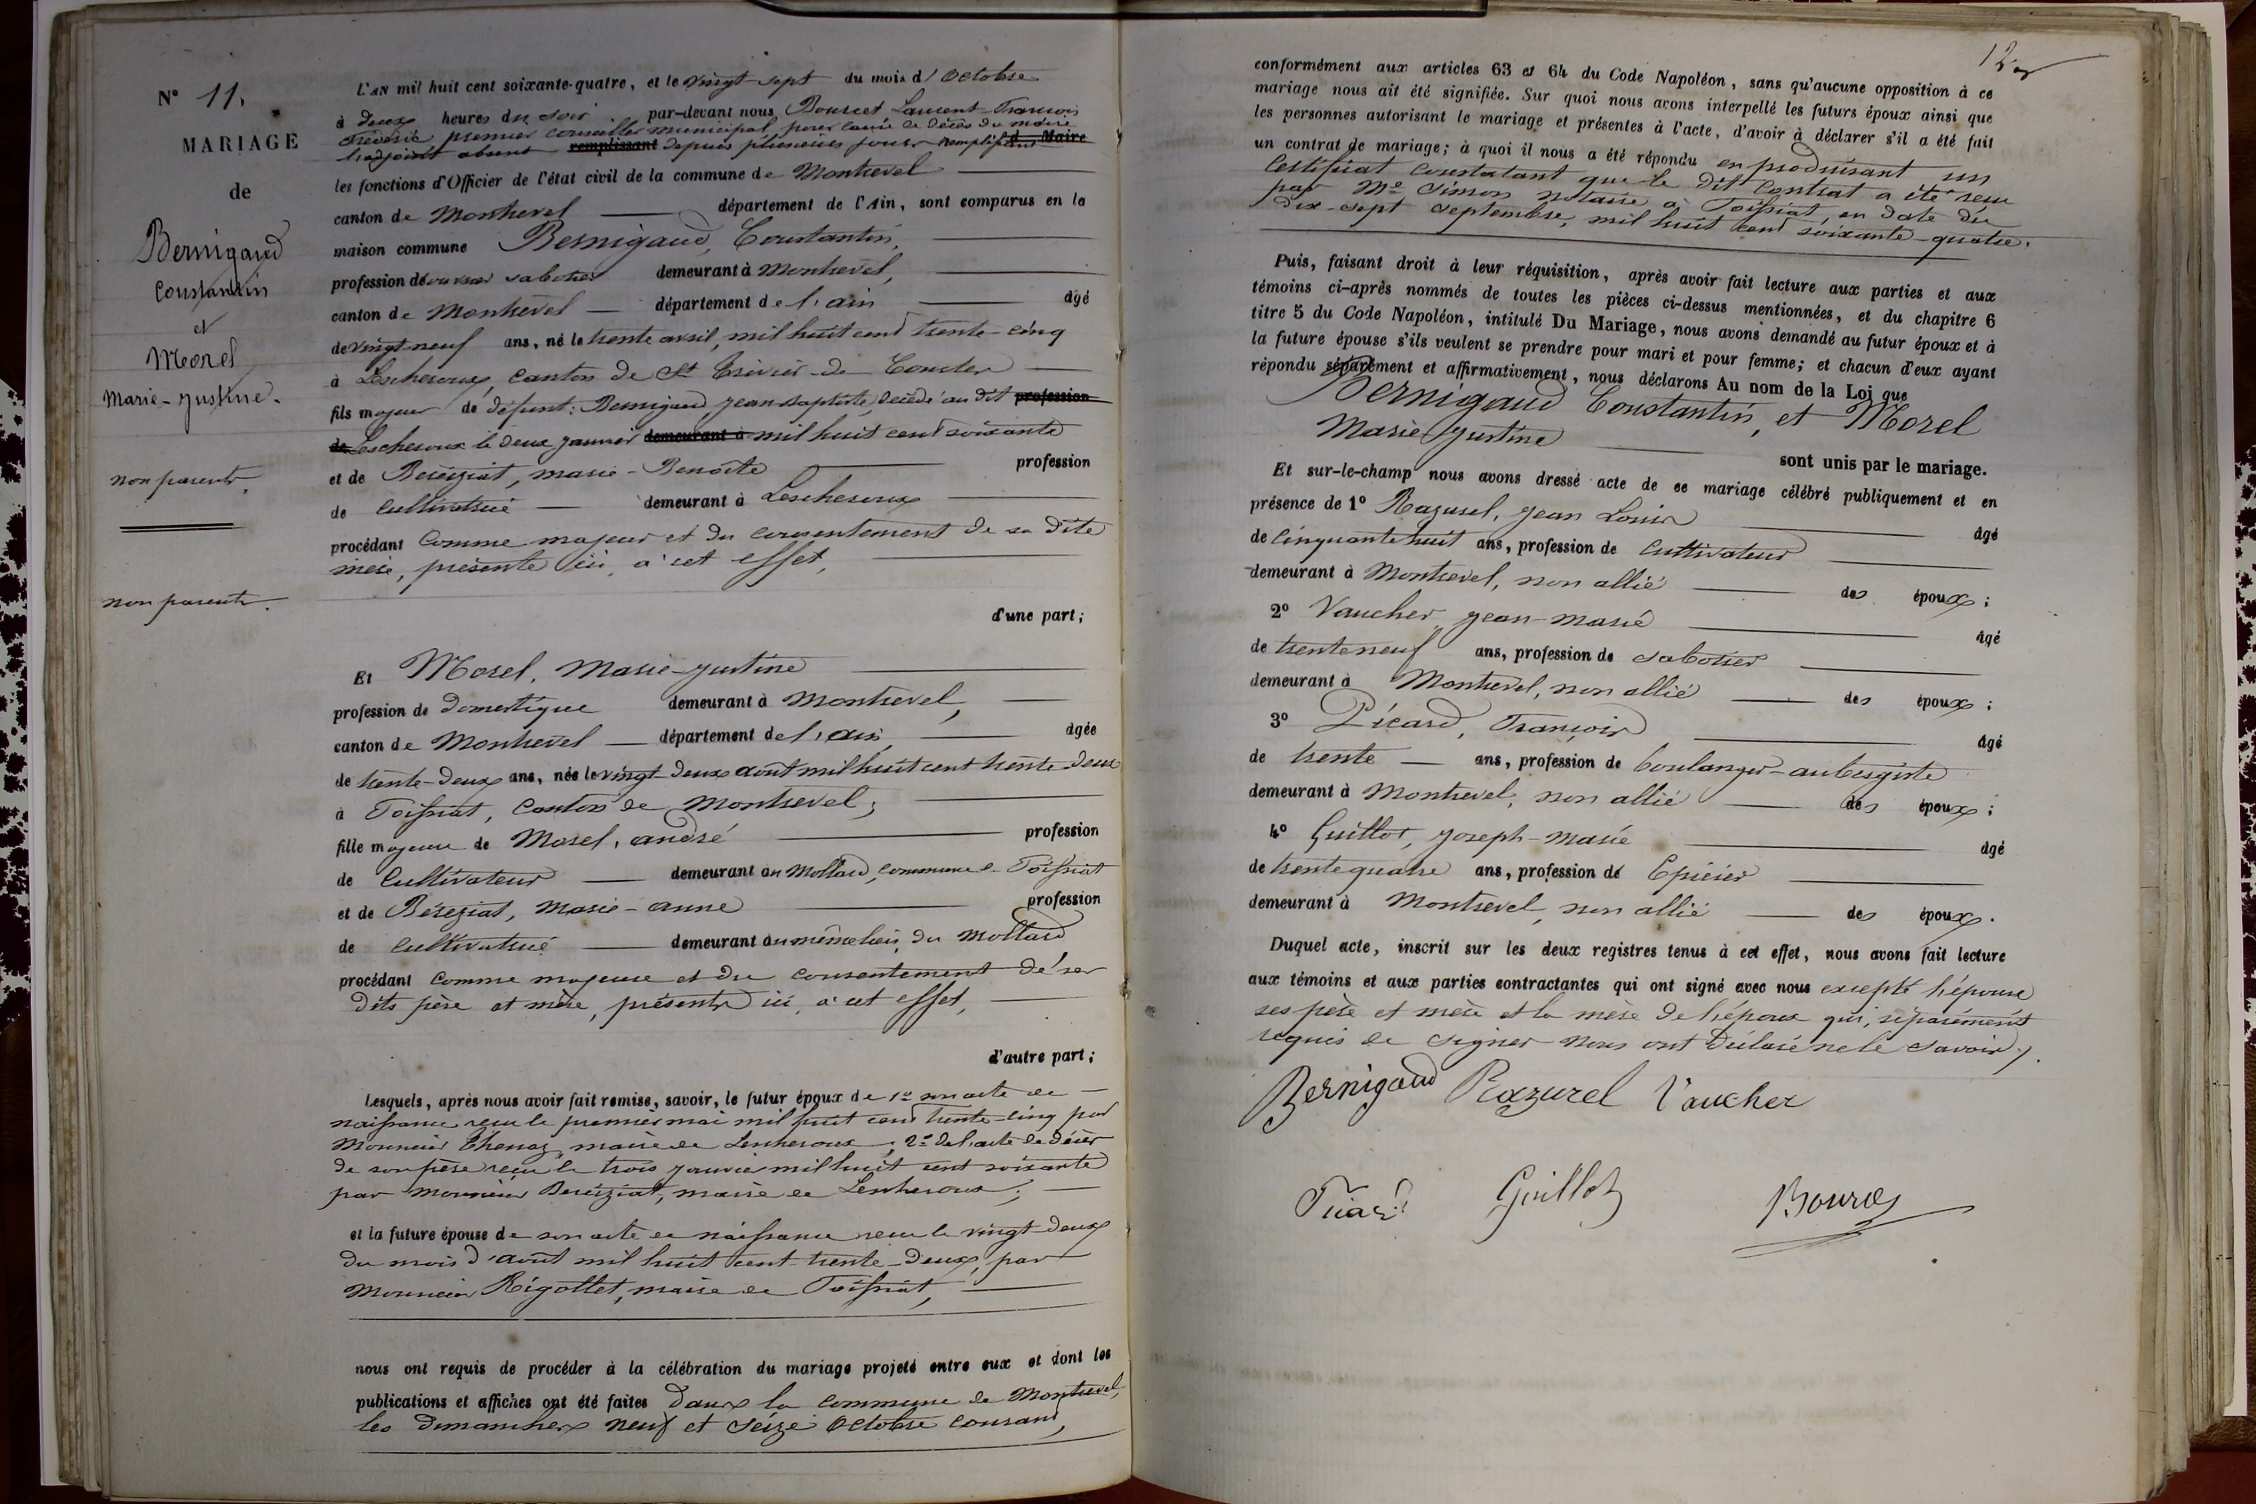 N° 11.
MARIAGE
de
Bernigaud
Constantin
et
Morel
Marie-Justine.
non parents.
non parents.
L'AN mil huit cent soixante-quatre, et le vingt-sept du mois d'Octobre
à deux heures du soir par-devant nous Bourcet Laurent-François
Fréderic premier conseiller municipal, pour cause de décès du maire
l'adjoint absent remplissant depuis plusieurs jours remplissant Maire
les fonctions d'Officier de l'état civil de la commune de Montrevel
canton de Montrevel département de l'Ain, sont comparus en la
maison commune Bernigaud, Constantin,
profession d'ouvrier sabotier demeurant à Montrevel,
canton de Montrevel département de l'ain âgé
de vingt-neuf ans, né le trente avril, mil huit cent trente-cinq
à Lescheroux, canton de St Trivier-de-Courtes
fils majeur de défunt: Bernigaud, Jean-baptiste, décédé au dit profession
de Lescheroux le deux janvier demeurant à mil huit cent soixante
et de Béréziat, marie-Benoite profession
de cultivatrice demeurant à Lescheroux
procédant comme majeur et du consentement de sa dite
mère, présente ici, à cet effet,
d'une part;
Et Morel, Marie-justine
profession de domestique demeurant à Montrevel,
canton de Montrevel département de l'ain, âgée
de trente-deux ans, née le vingt-deux août mil huit cent trente-deux
à Foissiat, canton de Montrevel;
fille majeure de Morel, andré profession
de Cultivateur demeurant au Mollard, commune de Foissiat
et de Béréziat, Marie-anne profession
de cultivatrice demeurant au même lieu, du Mollard
procédant comme majeure et du consentement de ses
dits père et mère, présents ici, à cet effet,
d'autre part;
Lesquels, après nous avoir fait remise, savoir, le futur époux de 1° son acte de
naissance reçu le premier mai mil huit cent trente-cinq par
Monsieur Thenoz, maire de Lescheroux; 2° de l'acte de décès
de son père reçu le trois janvier mil huit cent soixante
par Monsieur Béréziat, maire de Lescheroux;
et la future épouse de son acte de naissance reçu le vingt-deux
du mois d'août mil huit cent trente-deux, par
Monsieur Rigollet, maire de Foissiat,
nous ont requis de procéder à la célébration du mariage projeté entre eux et dont les
publications et affiches ont été faites dans la commune de Montrevel,
les dimanches neuf et seize Octobre courant,
12
conformément aux articles 63 et 64 du Code Napoléon, sans qu'aucune opposition à ce
mariage nous ait été signifiée. Sur quoi nous avons interpellé les futurs époux ainsi que
les personnes autorisant le mariage et présentes à l'acte, d'avoir à déclarer s'il a été fait
un contrat de mariage; à quoi il nous a été répondu en produisant un
Certificat constatant que le dit Contrat a été reçu
par Me Simon notaire à Foissiat, en date du
dix-sept septembre, mil huit cent soixante-quatre.
Puis, faisant droit à leur réquisition, après avoir fait lecture aux parties et aux
témoins ci-après nommés de toutes les pièces ci-dessus mentionnées, et du chapitre 6
titre 5 du Code Napoléon, intitulé Du Mariage, nous avons demandé au futur époux et à
la future épouse s'ils veulent se prendre pour mari et pour femme; et chacun d'eux ayant
répondu séparément et affirmativement, nous déclarons Au nom de la Loi que
Bernigaud Constantin, et Morel
Marie-Justine
sont unis par le mariage.
Et sur-le-champ nous avons dressé acte de ce mariage célébré publiquement et en
présence de 1° Razurel, Jean Louis âgé
de cinquante huit ans, profession de cultivateur
demeurant à Montrevel, non allié des époux;
2° Vaucher, Jean-Marie âgé
de trente neuf ans, profession de sabotier
demeurant à Montrevel, non allié des époux;
3° Picard, François âgé
de trente ans, profession de boulanger-aubergiste
demeurant à Montrevel, non allié des époux;
4° Guillot, Joseph-Marie âgé
de trente quatre ans, profession de Epicier
demeurant à Montrevel, non allié des époux.
Duquel acte, inscrit sur les deux registres tenus à cet effet, nous avons fait lecture
aux témoins et aux parties contractantes qui ont signé avec nous excepté l'épouse
ses père et mère et la mère de l'époux qui, séparément
requis de signer nous ont déclaré ne le savoir.
Bernigaud Razurel Vaucher
Picard Guillot Bourcet